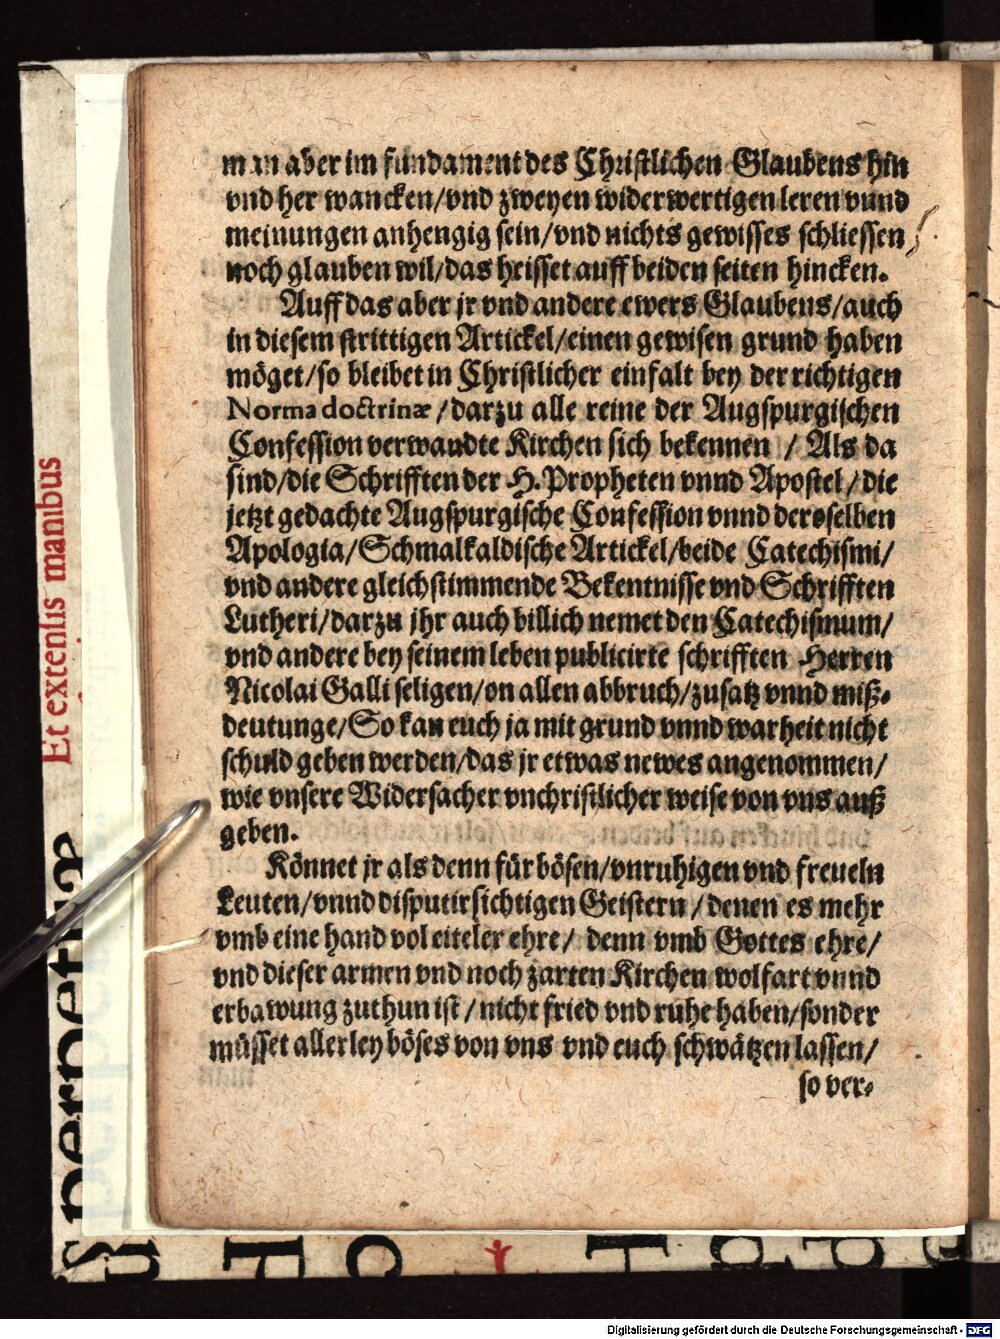 man aber im fundament des Christlichen Glaubens hin
vnd her wancken/vnd zweyen widerwertigen leren vnnd
meinungen anhengig sein/vnd nichts gewisses schliessen
noch glauben wil/das heisset auff beiden seiten hincken.
Auff das aber jr vnd andere ewers Glaubens/auch
in diesem strittigen Artickel/einen gewisen grund haben
möget/so bleibet in Christlicher einfalt bey der richtigen
Norma doctrinæ/darzu alle reine der Augspurgischen
Confession verwandte Kirchen sich bekennen / Als da
sind/die Schrifften der H. Propheten vnnd Apostel/die
jetzt gedachte Augspurgische Confession vnnd derselben
Apologia/Schmalkaldische Artickel/beide Catechismi/
vnd andere gleichstimmende Bekentnisse vnd Schrifften
Lutheri/darzu jhr auch billich nemet den Catechismum/
vnd andere bey seinem leben publicirte schrifften Herren
Nicolai Galli seligen/on allen abbruch/zusatz vnnd miß-
deutunge/So kan euch ja mit grund vnnd warheit nicht
schuld geben werden/das jr etwas newes angenommen/
wie vnsere Widersacher vnchristlicher weise von vns auß
geben.
Könnet jr als denn für bösen/vnruhigen vnd freueln
Leuten/vnnd disputirsichtigen Geistern/denen es mehr
vmb eine hand vol eiteler ehre/ denn vmb Gottes ehre/
vnd dieser armen vnd noch zarten Kirchen wolfart vnnd
erbawung zuthun ist/nicht fried vnd ruhe haben/sonder
müsset allerley böses von vns vnd euch schwätzen lassen/
so ver-
Et extensis manibus
perpetua
Digitalisierung gefördert durch die Deutsche Forschungsgemeinschaft - DFG